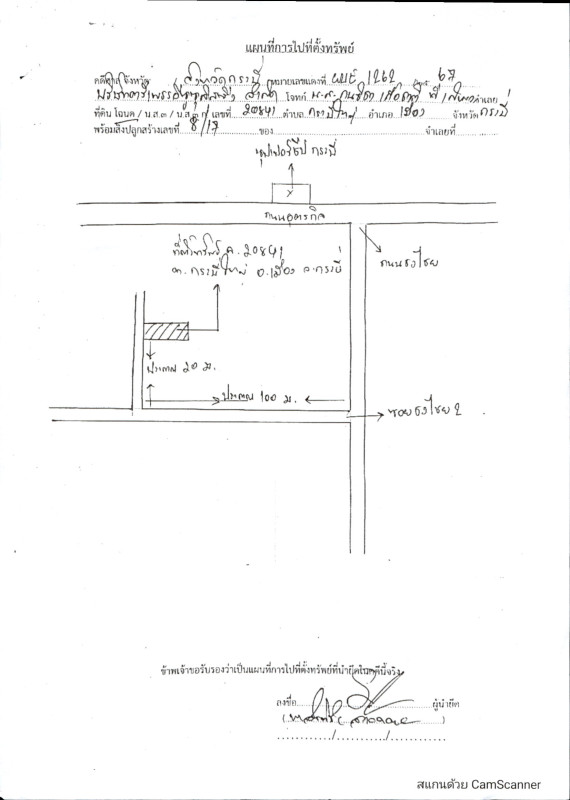 แผนที่การไปที่ตั้งทรัพย์
คดีศาลจังหวัด จังหวัดกระบี่ หมายเลขแดงที่ ผบE 1262 / 67
จำกัด โจทก์ น.ส. จำเลย
ที่ดิน โฉนด / น.ส.๓ / น.ส.๓ ก เลขที่ 20841 ตำบล กระบี่ใหญ่ อำเภอ เมือง จังหวัด กระบี่
พร้อมสิ่งปลูกสร้างเลขที่ 8/17 ของ จำเลยที่
ซุปเปอร์ชีป กระบี่
X
ถนนอุตรกิจ
ที่ตั้งทรัพย์ ฉ. 20841
ต. กระบี่ใหญ่ อ.เมือง จ.กระบี่
ถนนธงไชย
ประมาณ 20 ม.
ประมาณ 100 ม.
ซอยธงไชย 2
ข้าพเจ้าขอรับรองว่าเป็นแผนที่การไปที่ตั้งทรัพย์ที่นำยึดในคดีนี้จริง
ลงชื่อ ผู้นำยึด
สแกนด้วย CamScanner